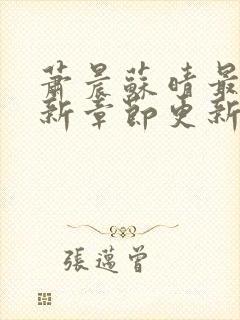 蕭晨蘇晴最
新章節更新
張邁曾